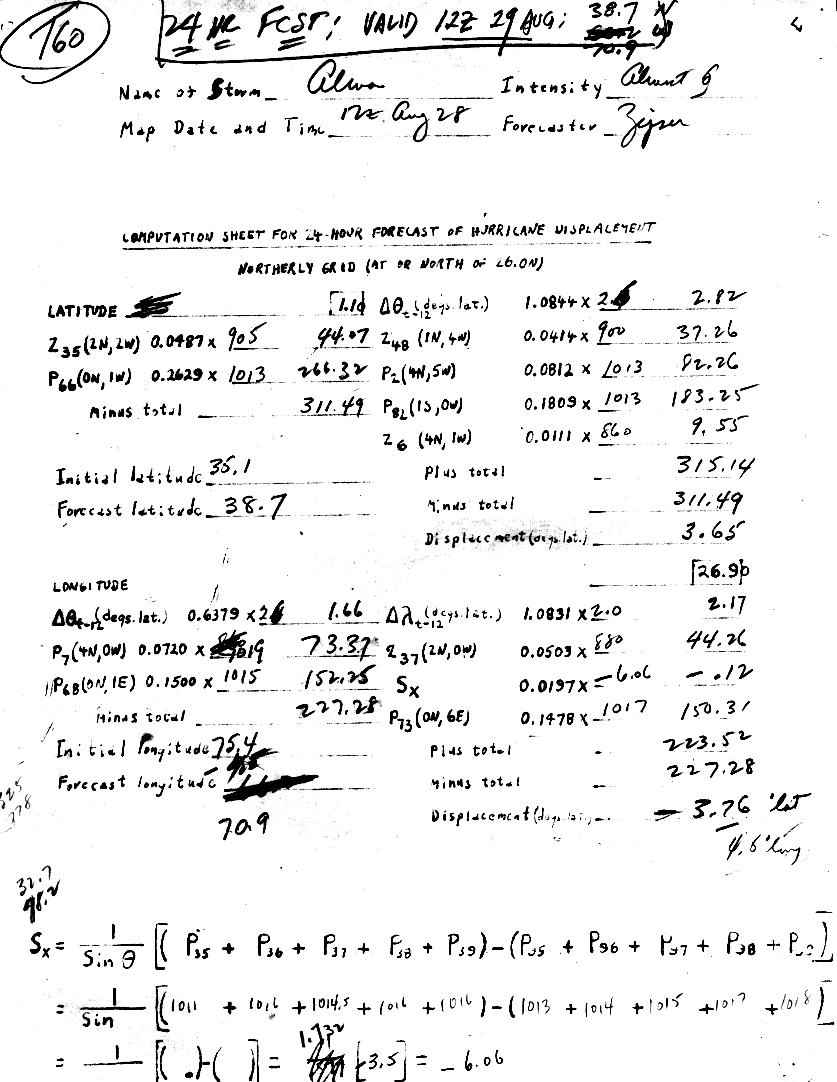 T60
24 HR FCST; VALID 12Z 29 AUG; 38.7 N
70.9 W
Name of Storm Alma Intensity
Map Date and Time 12Z Aug 28 Forecaster
COMPUTATION SHEET FOR 24-HOUR FORECAST OF HURRICANE DISPLACEMENT
NORTHERLY GRID (AT OR NORTH OF 26.0N)
LATITUDE 1.10 Δθt-12 (degs. lat.) 1.0844 x 2.6 2.82
Z35(2N,2W) 0.0487 x 905 44.07 Z48 (1N,4W) 0.0414 x 900 37.26
P66(0N,1W) 0.2629 x 1013 266.32 P2(4N,5W) 0.0812 x 1013 82.26
Minus total 311.49 P82(1S,0W) 0.1809 x 1013 183.25
Z6 (4N,1W) 0.0111 x 860 9.55
Initial latitude 35.1 Plus total 315.14
Forecast latitude 38.7 Minus total 311.49
Displacement (degs. lat.) 3.65
LONGITUDE 26.90
Δθt-12 (degs. lat.) 0.6379 x 2.6 1.66 Δλt-12 (degs. lat.) 1.0831 x 2.0 2.17
P7(4N,0W) 0.0720 x 1019 73.37 Z37(2N,0W) 0.0503 x 880 44.26
P68(0N,1E) 0.1500 x 1015 152.25 Sx 0.0197 x -6.06 -.12
Minus total 227.28 P73(0N,6E) 0.1478 x 1017 150.31
Initial Longitude 75.4 Plus total 223.52
Forecast longitude Minus total 227.28
70.9 Displacement (degs. lat.) - 3.76 °lat
4.6 °long
Sx = 1/Sin θ [(P35 + P36 + P37 + P38 + P39) - (P95 + P96 + P97 + P98 + P99)]
= 1/Sin [(1011 + 1016 + 1014.5 + 1016 + 1016) - (1013 + 1014 + 1015 + 1017 + 1018)]
= 1/ [( ) - ( )] = 1.732 [-3.5] = - 6.06